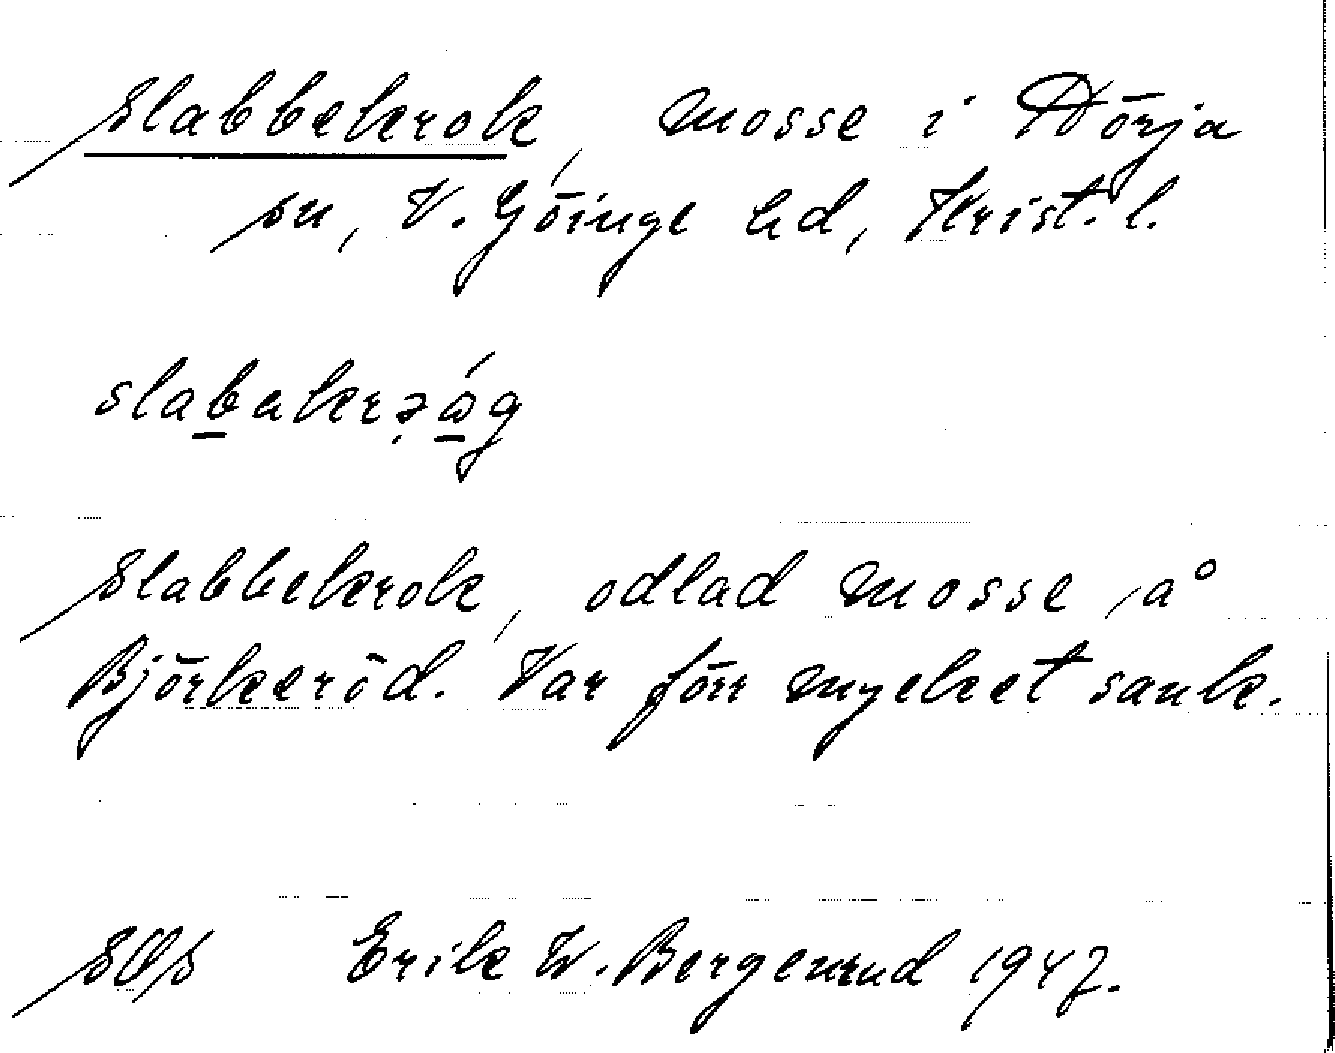 Slabbekrok, mosse i Hörja
sn, V. Göinge hd, Krist. l.
Slabbekrok, odlad mosse å
Björkeröd. Var förr mycket sank.
SOS Erik W. Bergenrud 1947.